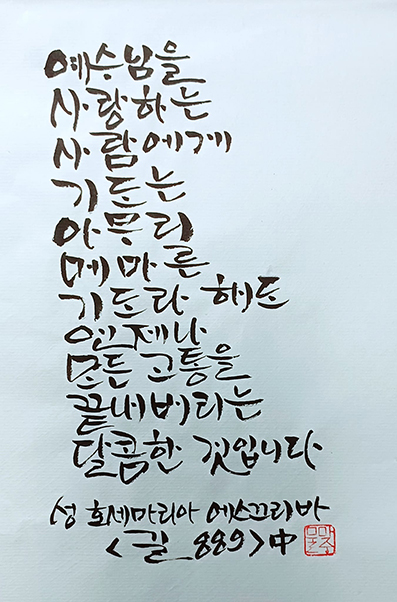 예수님을
사랑하는
사람에게
기도는
아무리
메마른
기도라 해도
언제나
모든 고통을
끝내버리는
달콤한 것입니다
성 호세마리아 에스끄리바
<길_889>中